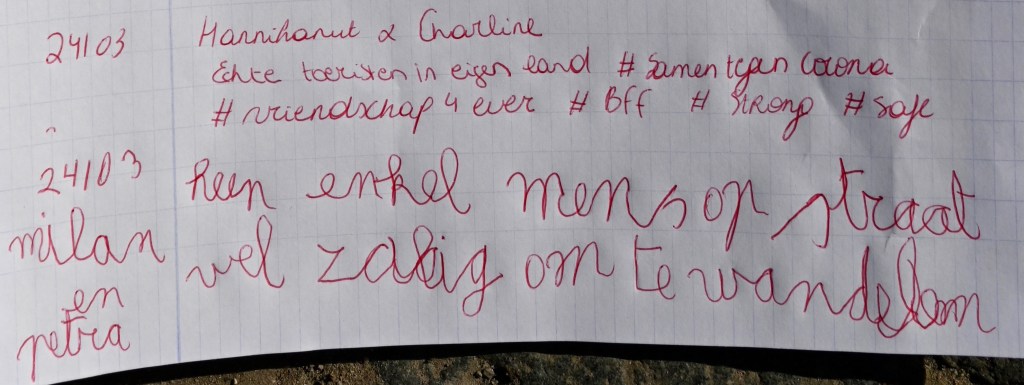 24/03 Hannihanut & Charline
Echte toeristen in eigen land # Samen tegen Corona
# vriendschap 4 ever # Bff # Strong # Safe
24/03 Keen enkel mens op straat
milan wel zalig om te wandelom
en
petra